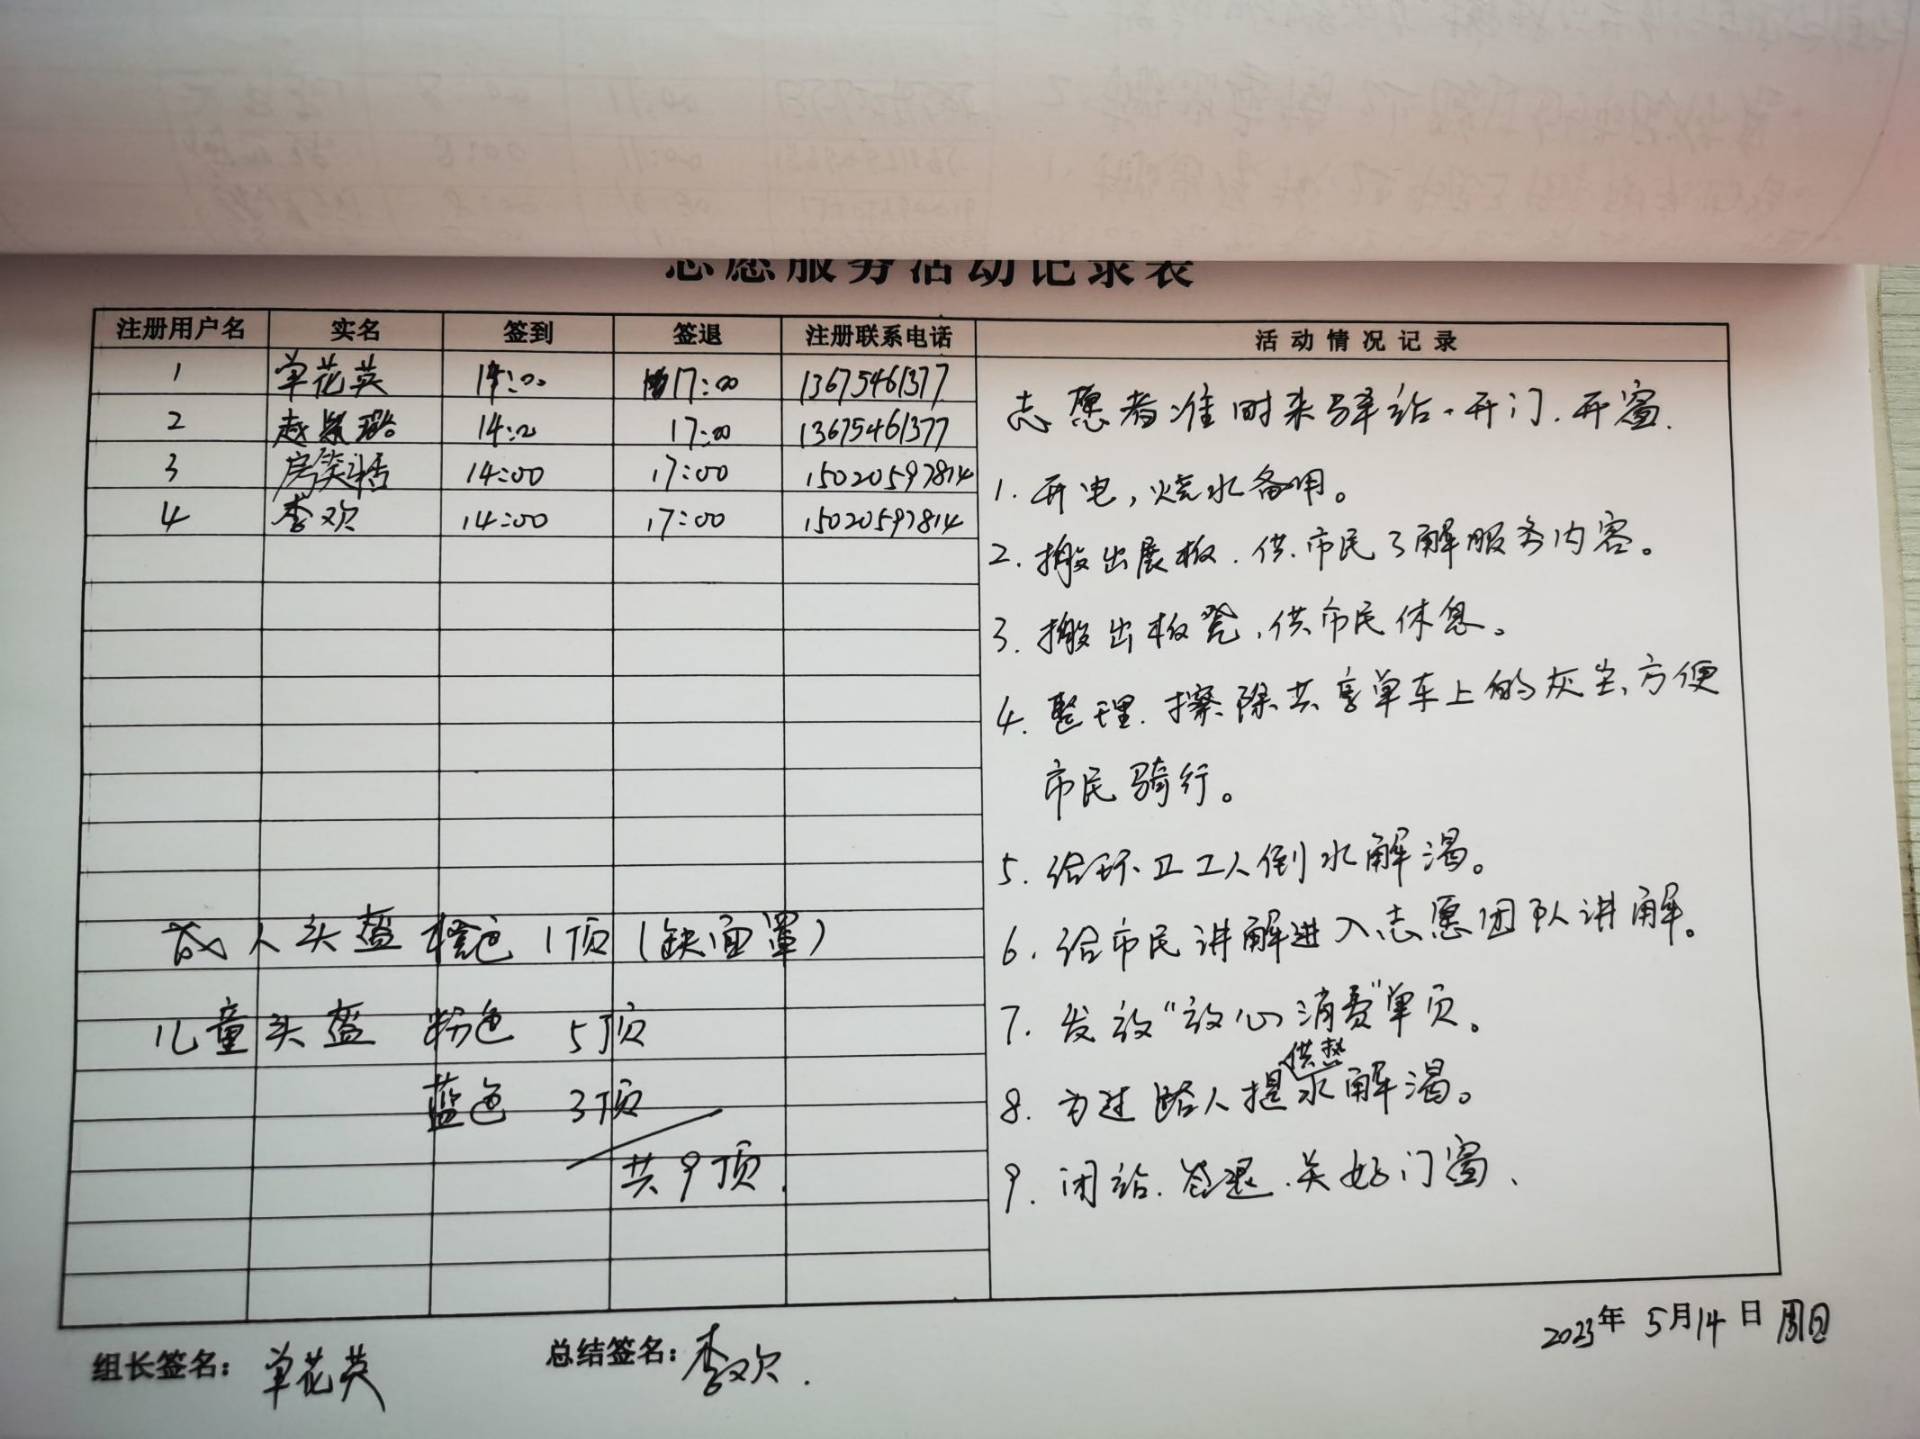 志愿服务活动记录表
注册用户名 实名 签到 签退 注册联系电话 活动情况记录
1 单花英 14:00 17:00 13675461377
2 赵 14:00 17:00 13675461377
3 房笑语 14:00 17:00 15020597814
4 李欢 14:00 17:00 15020597814
成人头盔 橙色 1顶(缺面罩)
儿童头盔 粉色 5顶
蓝色 3顶
共9顶.
志愿者准时来驿站.开门.开窗.
1. 开电,烧水备用。
2. 搬出展板.供市民了解服务内容。
3. 搬出板凳,供市民休息。
4. 整理.擦除共享单车上的灰尘,方便
市民骑行。
5. 给环卫工人倒水解渴。
6. 给市民讲解进入志愿团队讲解。
7. 发放“放心消费”单页。
8. 为过路人提供热水解渴。
9. 闭站.签退.关好门窗、
2023年 5月14日 周日
组长签名: 单花英 总结签名: 李欢.